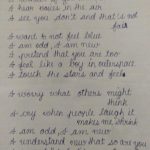 I hear voices in the air
I see you don't and that is not
fair
I want to not feel blue
I am odd, I am new
I pretend that you are too
I feel like a boy in outerspace
I touch the stars and feel
I worry what others might
think
I cry when people laugh it
makes me shrink
I am odd, I am new
I understand now that so are you